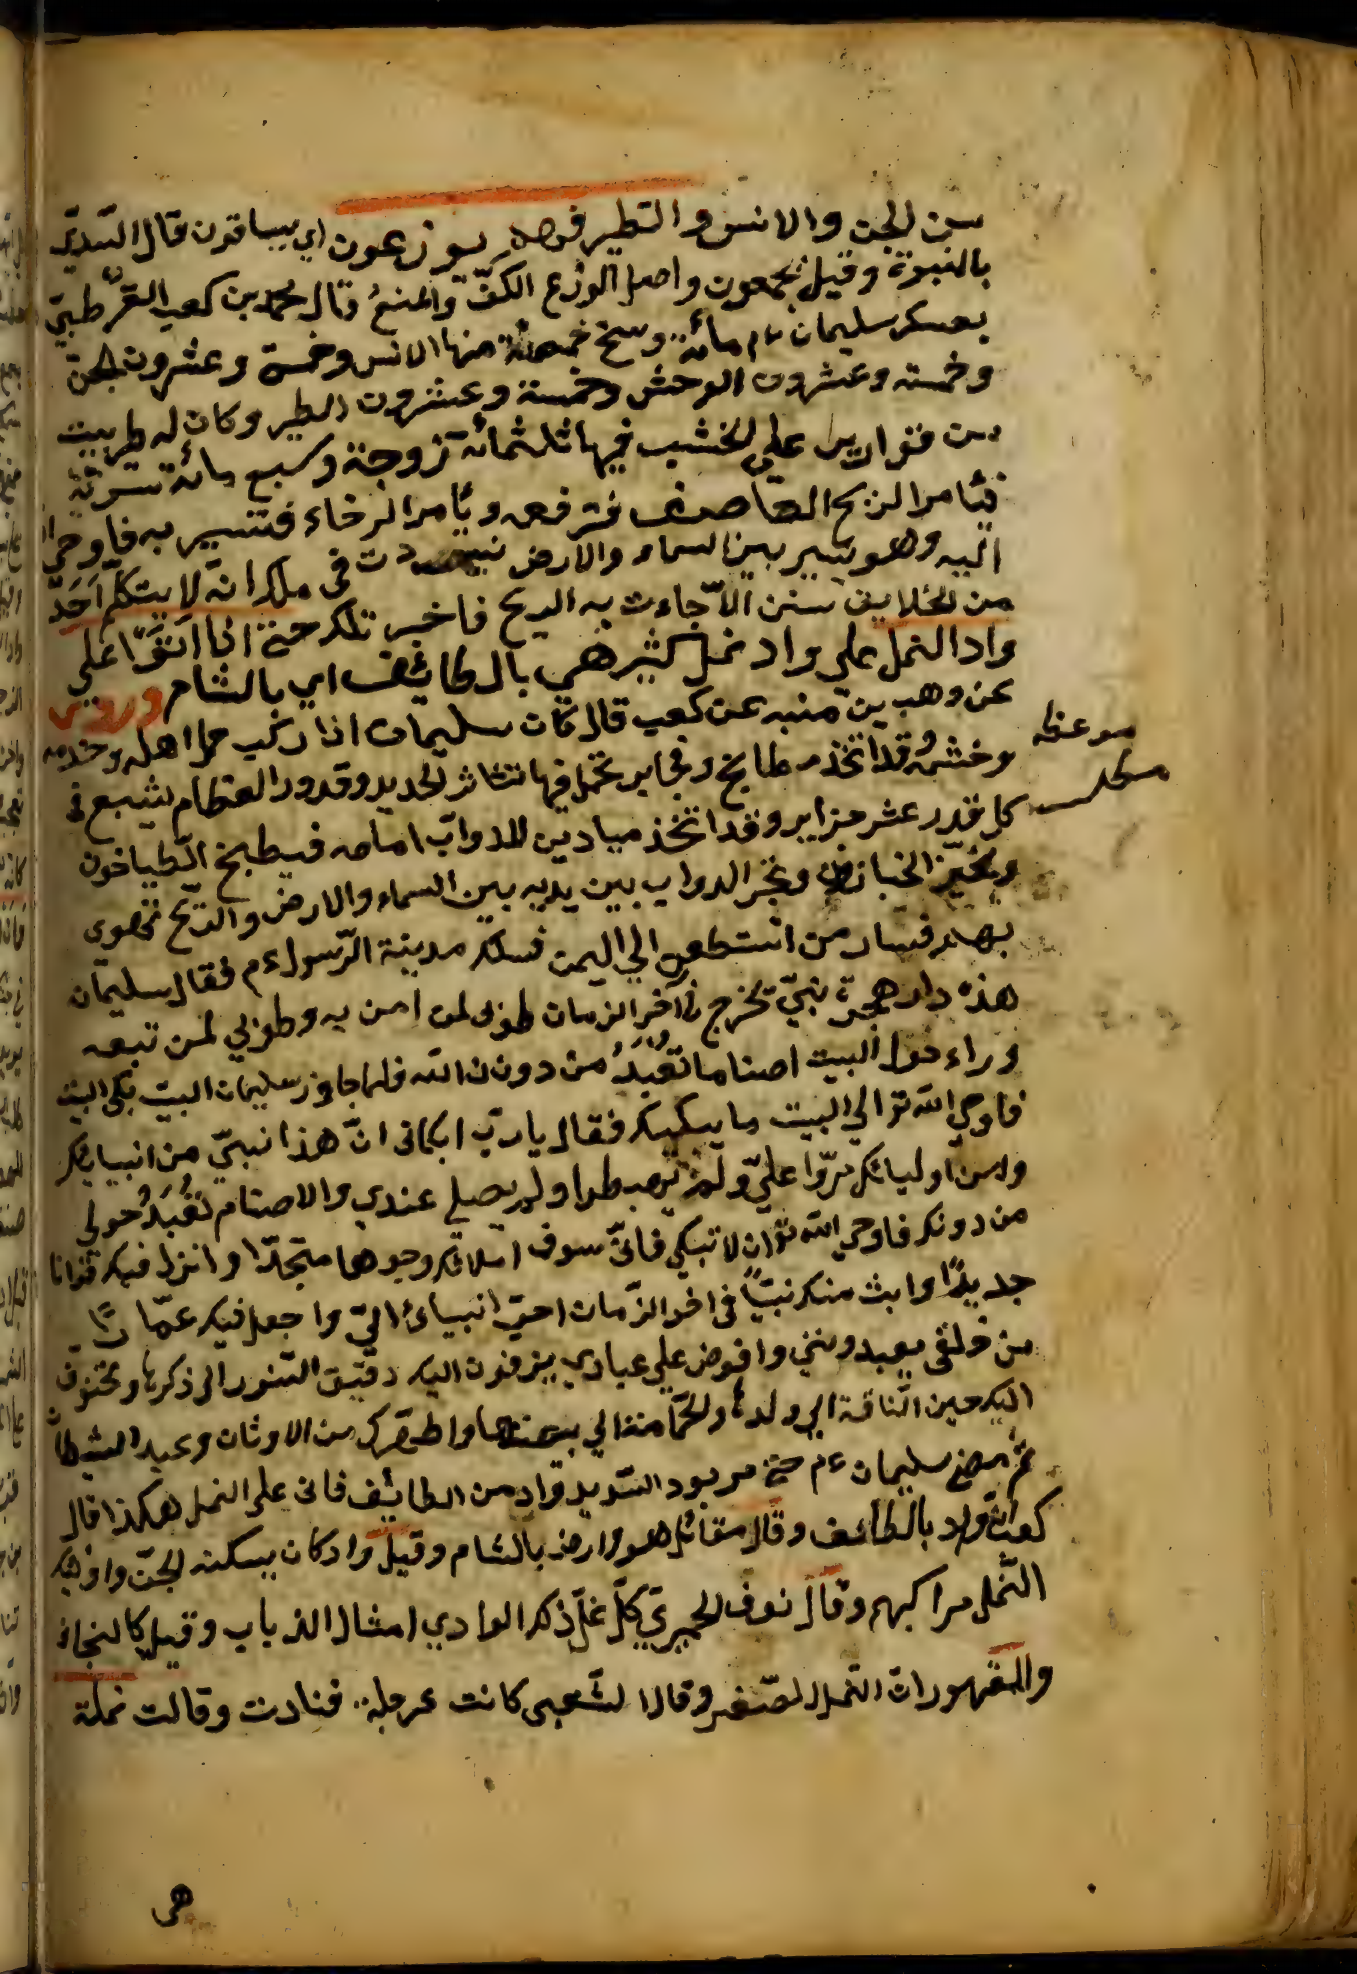 من الجن والانس والطير فهم يوزعون اي يساقون قال السّديّ
بالنبوة وقيل يجمعون واصل الوزع الكفّ والمنع قال محمد بن كعب القرطبيّ
بعسكر سليمان مائة فرسخ خمسة منها الانس وخمسة وعشرون الجن
وخمسة وعشرون الوحش وخمسة وعشرون الطير وكان له بيت
من قوارير على الخشب فيها ثلثمائة زوجة وسبع مائة سرّية
فيأمر الريح العاصف فترفعه ويأمر الرخاء فتسير به فاوحى
اليه وهو يسير بين السماء والارض زدت في ملكك انّه لا يتكلم احد
من الخلايق بشئ الاّ جاءت به الريح فاخبر تلك حتى اذا اتوا على
واد النمل على واد نمل كثير هي بالطائف اي بالشام وروى
عن وهب بن منبه عن كعب قال كان سليمان اذا ركب حمل اهله وخدمه
وحشمه وقد اتخذ مطابخ ومخابز تحمل فيها تنانير الحديد وقدور العظام يشبع في
كل قدر عشر جزاير وقد اتخذ ميادين للدوابّ امامه فيطبخ الطّباخون
ويخبز الخبازون وتجر الدواب بين يديه بين السماء والارض والريح تهوى
بهم فسار من اصطخر الى اليمن فسلك مدينة الرّسول ءم فقال سليمان
هذه دار هجرة نبيّ يخرج في آخر الزمان طوبى لمن امن به وطوبى لمن تبعه
وراء حول البيت اصناما تُعْبَدُ من دون الله فلما جاوز سليمان البيت بكى البيت
فاوحى الله تع الى البيت ما يبكيك فقال يا ربّ ابكانى انّ هذا نبيّ من انبيائك
ومن اوليائك مرّوا عليّ ولم يهبطوا ولم يصلى عندي والاصنام تُعْبَدُ حولي
من دونك فاوحى الله تع ان لا تبكى فانّى سوف املائك وجوها سجّدا وانزل فيك قرانا
جديدًا وابث منك نبيّاً في اخر الزّمان احبّ انبيائ الىّ واجعل فيك عمّارًا
من خلقى يعبدوننى وافرض على عبادي يزفون اليك دقيق النسور الى ذكرها ويحنون
اليك حين النّاقة الى ولدها والحمامة الى بيضتها واطهرك من الاوثان وعبد الشيطان
ثم مضى سليمان ءم حتى مر بود السّدير واد من الطائف فاتى على النمل هكذا قال
كعب انّه واد بالطائف وقال مقاتل هو ارض بالشام وقيل واد كان يسكنه الجنّ واوليك
النّمل مراكبهم وقال نوف الحميريّ كلّ نمل ذكر الوادي امثال الذباب وقيل كالبخاة
والمشهور انّ النمل الصّغير وقال الشّعبى كانت عرجاة فنادت وقالت نملة
موعظه
مطلب
هى